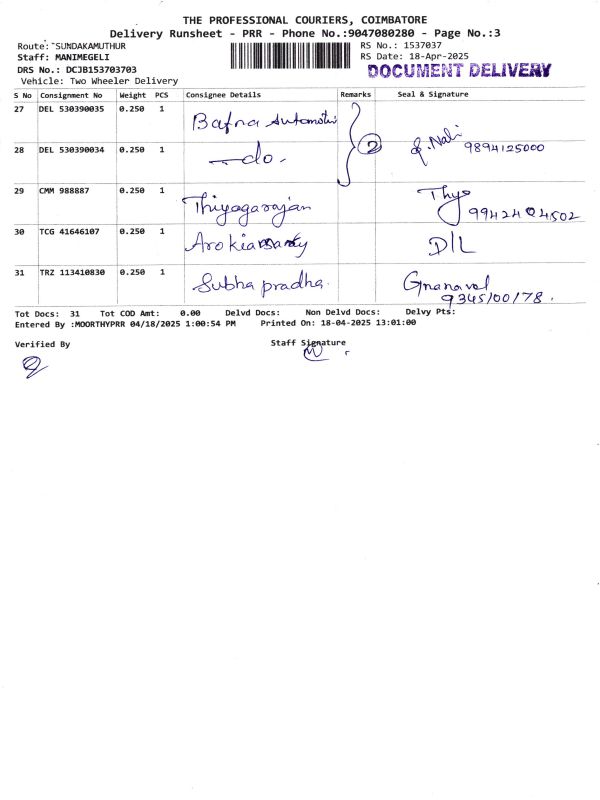 THE PROFESSIONAL COURIERS, COIMBATORE
Delivery Runsheet - PRR - Phone No.:9047080280 - Page No.:3
Route: SUNDAKAMUTHUR
RS No.: 1537037
Staff: MANIMEGELI
RS Date: 18-Apr-2025
DRS No.: DCJB153703703
DOCUMENT DELIVERY
Vehicle: Two Wheeler Delivery
S No Consignment No Weight PCS Consignee Details Remarks Seal & Signature
27 DEL 530390035 0.250 1 Bafna Automotiv
28 DEL 530390034 0.250 1 —do- 2 9894125000
29 CMM 988887 0.250 1 Thiyagarajan Thyo 9942404502
30 TCG 41646107 0.250 1 D/L
31 TRZ 113410830 0.250 1 Subha pradha. Gnanavel
9345100178.
Tot Docs: 31 Tot COD Amt: 0.00 Delvd Docs: Non Delvd Docs: Delvy Pts:
Entered By :MOORTHYPRR 04/18/2025 1:00:54 PM Printed On: 18-04-2025 13:01:00
Verified By Staff Signature